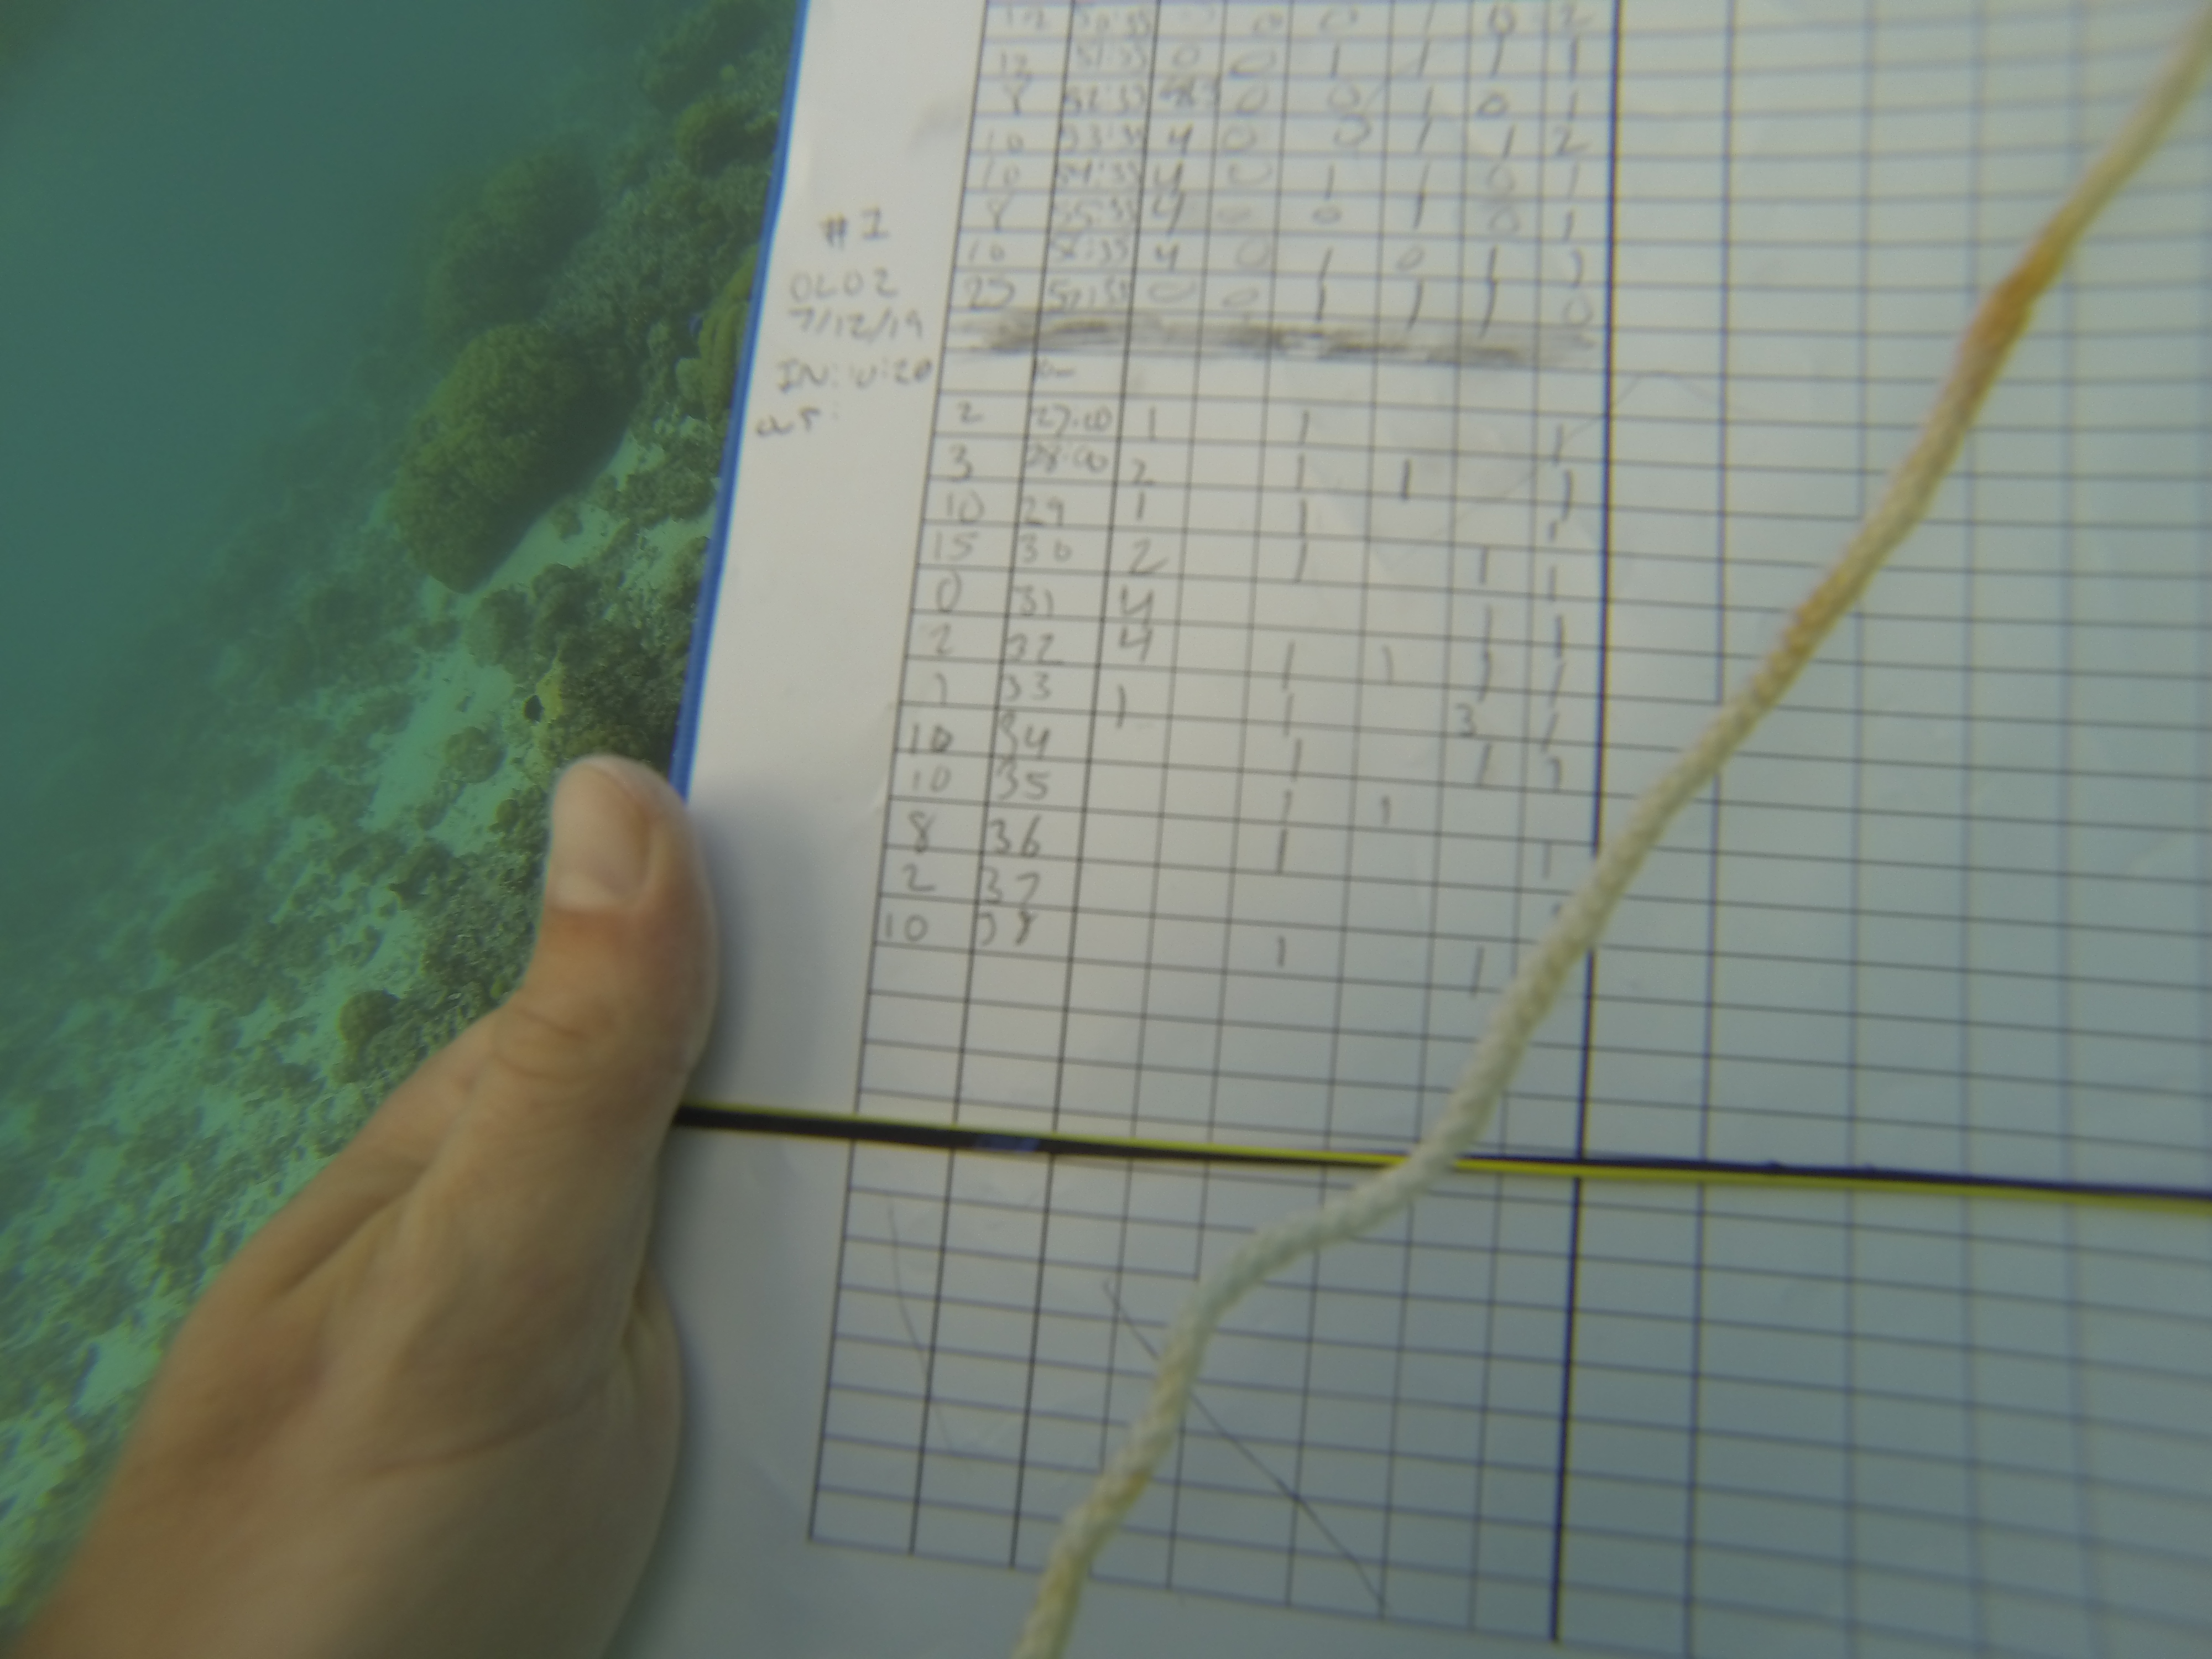 12 50:35 0 0 0 1 0 2
12 51:35 0 0 1 1 1 1
8 52:35 0 0 1 0 1
10 53:35 4 0 0 1 1 2
10 54:35 4 0 1 1 0 1
8 55:35 4 0 0 1 0 1
10 56:35 4 0 1 0 1 1
25 57:35 0 0 1 1 1 0
#1
OLO2
7/12/19
IN:
2 27:00 1 1 1
3 28:00 2 1 1 1
10 29 1 1 1
15 30 2 1 1 1
0 31 4 1 1
2 32 4 1 1 1 1
1 33 1 1 3 1
10 34 1 1 1
10 35 1 1
8 36 1 1
2 37
10 38 1 1